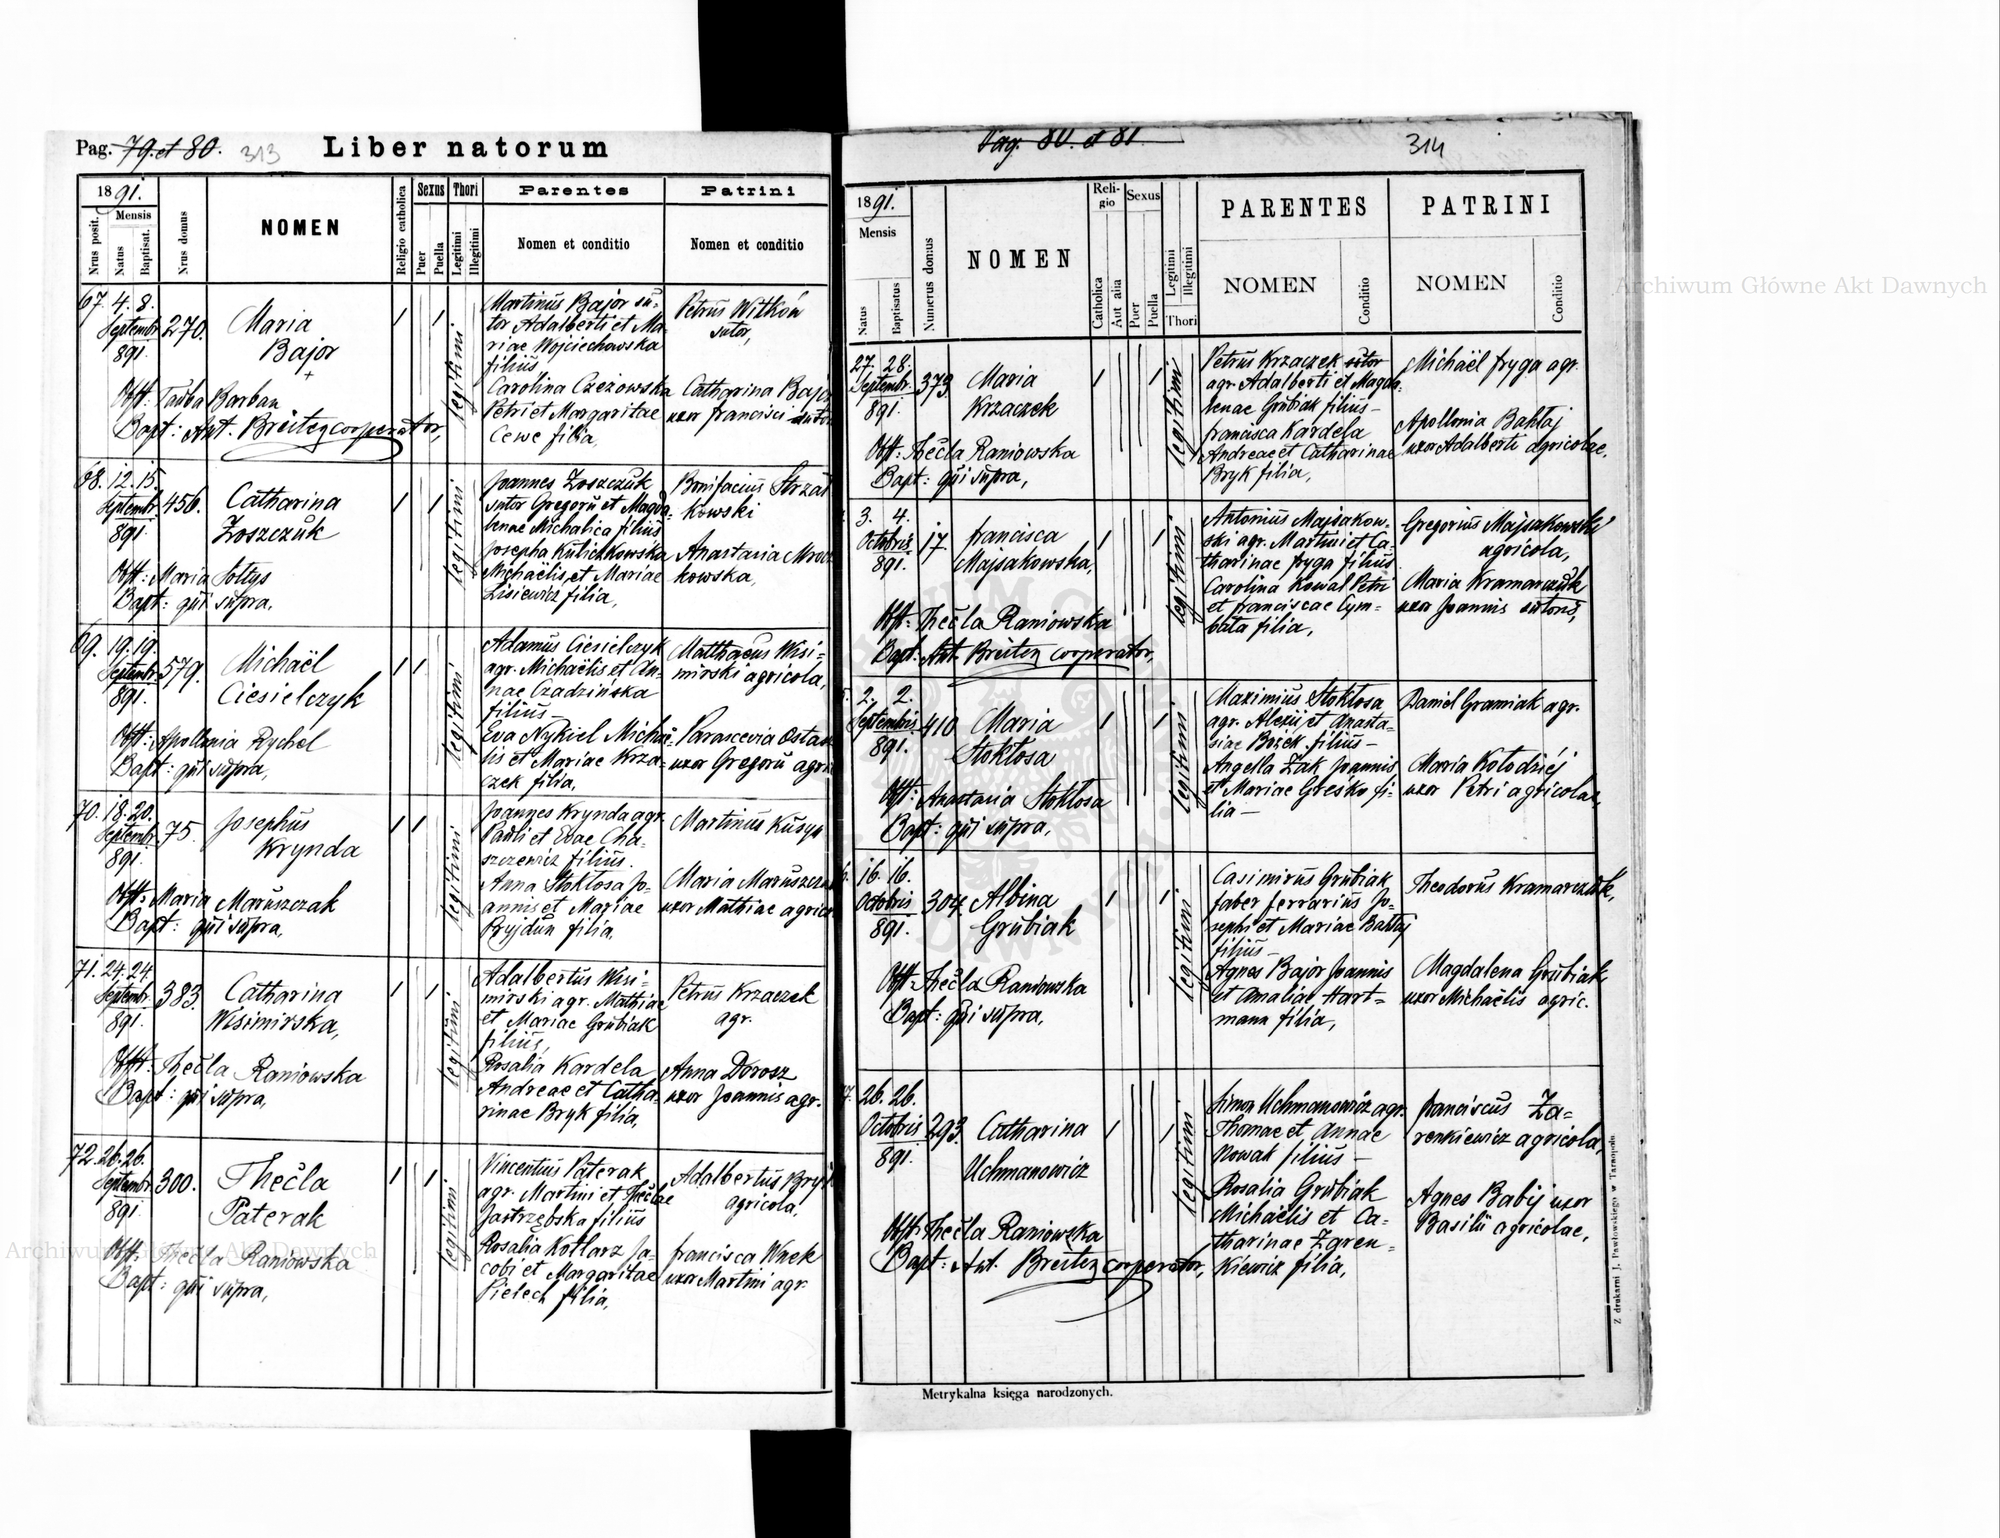 Pag. 79. et 80. 313 Liber natorum
1891.
Mensis
Nrus posit.
Natus
Baptisat.
Nrus domus
NOMEN
Religio catholica
Sexus
Puer
Puella
Thori
Legitimi
Illegitimi
Parentes
Nomen et conditio
Patrini
Nomen et conditio
67. 4. 8.
Septembr.
891.
270.
Maria
Bajor
+
Obst: Tauba Barban
Bapt: Ant. Breitez cooperator,
legitimi
Martinus Bajor su-
tor Adalberti et Ma-
riae Wojciechowska
filius
Carolina Czezowska
Petri et Margaritae
Cewe filia,
Petrus Witków
sutor,
Catharina Bajor
uxor francisci sutor
68. 12. 15.
Septembr.
891.
456.
Catharina
Zoszczuk
Obst: Maria Soltys
Bapt: qui supra,
legitimi
Joannes Zoszczuk
sutor Gregorii et Magda-
lenae Michalica filius
Josepha Kulichkowska
Michaëlis et Mariae
Lisiewicz filia,
Bonifacius Strzał
kowski
Anastasia Mrocz
kowska,
69. 19. 19.
Septembr.
891.
579.
Michaël
Ciesielczyk
Obst: Apollonia Rychel
Bapt: qui supra,
legitimi
Adamus Ciesielczyk
agr. Michaëlis et An-
nae Czadzińska
filius —
Eva Nykiel Michaë-
lis et Mariae Krza-
czek filia,
Matthaeus Wisi-
mirski agricola,
Parascevia Ostasz
uxor Gregorii agric
70. 18. 20.
Septembr.
891.
75.
Josephus
Krynda
Obst: Maria Maruszczak
Bapt: qui supra,
legitimi
Joannes Krynda agr.
Pauli et Evae Cha-
szczewicz filius.
Anna Stoktosa Jo-
annis et Mariae
Pryjdun filia,
Martinus Kusyn
Maria Maruszczak
uxor Mathiae agric
71. 24. 24.
Septembr.
891.
383.
Catharina
Wisimirska,
Obst: Thecla Raniowska
Bapt: qui supra,
legitimi
Adalbertus Wisi-
mirski agr. Mathiae
et Mariae Grubiak
filius,
Rosalia Kardela
Andreae et Catha-
rinae Bryk filia,
Petrus Krzaczek
agr.
Anna Dorosz
uxor Joannis agr.
72. 26. 26.
Septembr.
891.
300.
Thecla
Paterak
Obst: Thecla Raniowska
Bapt: qui supra,
legitimi
Vincentius Paterak
agr. Martini et Theclae
Jastrzębska filius
Rosalia Kotlarz Ja-
cobi et Margaritae
Pielech filia,
Adalbertus Bryk
agricola,
francisca Wnek
uxor Martini agr.
Pag. 80. et 81. 314
1891.
Mensis
Natus
Baptisatus
Numerus domus
NOMEN
Religio
Catholica
Aut alia
Sexus
Puer
Puella
Legitimi
Illegitimi
Thori
PARENTES
NOMEN
Conditio
PATRINI
NOMEN
Conditio
27. 28.
Septembr.
891.
373.
Maria
Krzaczek
Obst: Thecla Raniowska
Bapt: qui supra,
legitimi
Petrus Krzaczek sutor
agr. Adalberti et Magda-
lenae Grubiak filius —
francisca Kardela
Andreae et Catharinae
Bryk filia,
Michaël fryga agr.
Apollonia Bahtaj
uxor Adalberti agricolae,
3. 4.
Octobris
891.
17.
francisca
Majsakowska,
Obst: Thecla Raniowska
Bapt: Ant. Breitez cooperator,
legitimi
Antonius Majsakow-
ski agr. Martini et Ca-
tharinae fryga filius
Carolina Kowal Petri
et franciscae Cym-
bata filia,
Gregorius Majsakowski
agricola,
Maria Kramarczuk
uxor Joannis sutoris,
2. 2.
Septembris
891.
410
Maria
Stoktosa
Obst: Anastasia Stoktosa
Bapt: qui supra,
legitimi
Maximius Stoktosa
agr. Alexii et Anasta-
siae Bożek filius —
Angella Żak Joannis
et Mariae Gresko fi-
lia —
Daniel Graniak agr.
Maria Kotodziéj
uxor Petri agricolae,
16. 16.
Octobris
891.
304.
Albina
Grubiak
Obst: Thecla Raniowska
Bapt: qui supra,
legitimi
Casimirus Grubiak
faber ferrarius Jo-
sephi et Mariae Battaj
filius —
Agnes Bajor Joannis
et Amaliae Hart-
mann filia,
Theodorus Kramarczuk,
Magdalena Grubiak
uxor Michaëlis agric.
26. 26.
Octobris
891.
293.
Catharina
Uchmanowicz
Obst: Thecla Raniowska
Bapt: Ant. Breitez cooperator,
legitimi
Simon Uchmanowicz agr.
Thomae et Annae
Nowak filius —
Rosalia Grubiak
Michaëlis et Ca-
tharinae Zaren-
kiewicz filia,
franciscus Za-
renkiewicz agricola,
Agnes Babij uxor
Basilii agricolae,
Metrykalna księga narodzonych.
Z drukarni J. Pawłowskiego w Tarnopolu
Archiwum Główne Akt Dawnych
Archiwum Główne Akt Dawnych